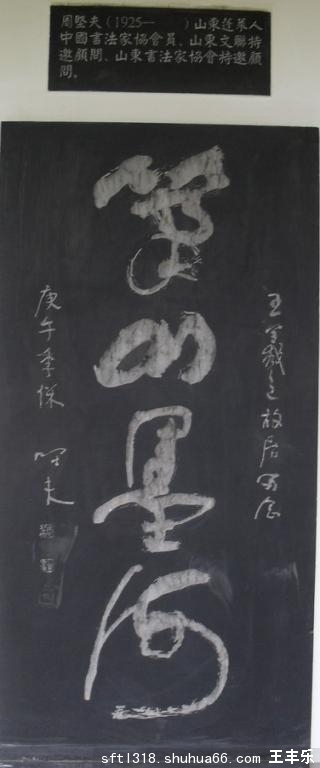 周堅夫（1925— ）山東蓬萊人
中國書法家協會員、山東文聯特
邀顧問、山東書法家協會特邀顧
問。
王羲之故居留念
筆山墨海
庚午季秋
堅夫
sftl318.shuhua66.com 王丰乐